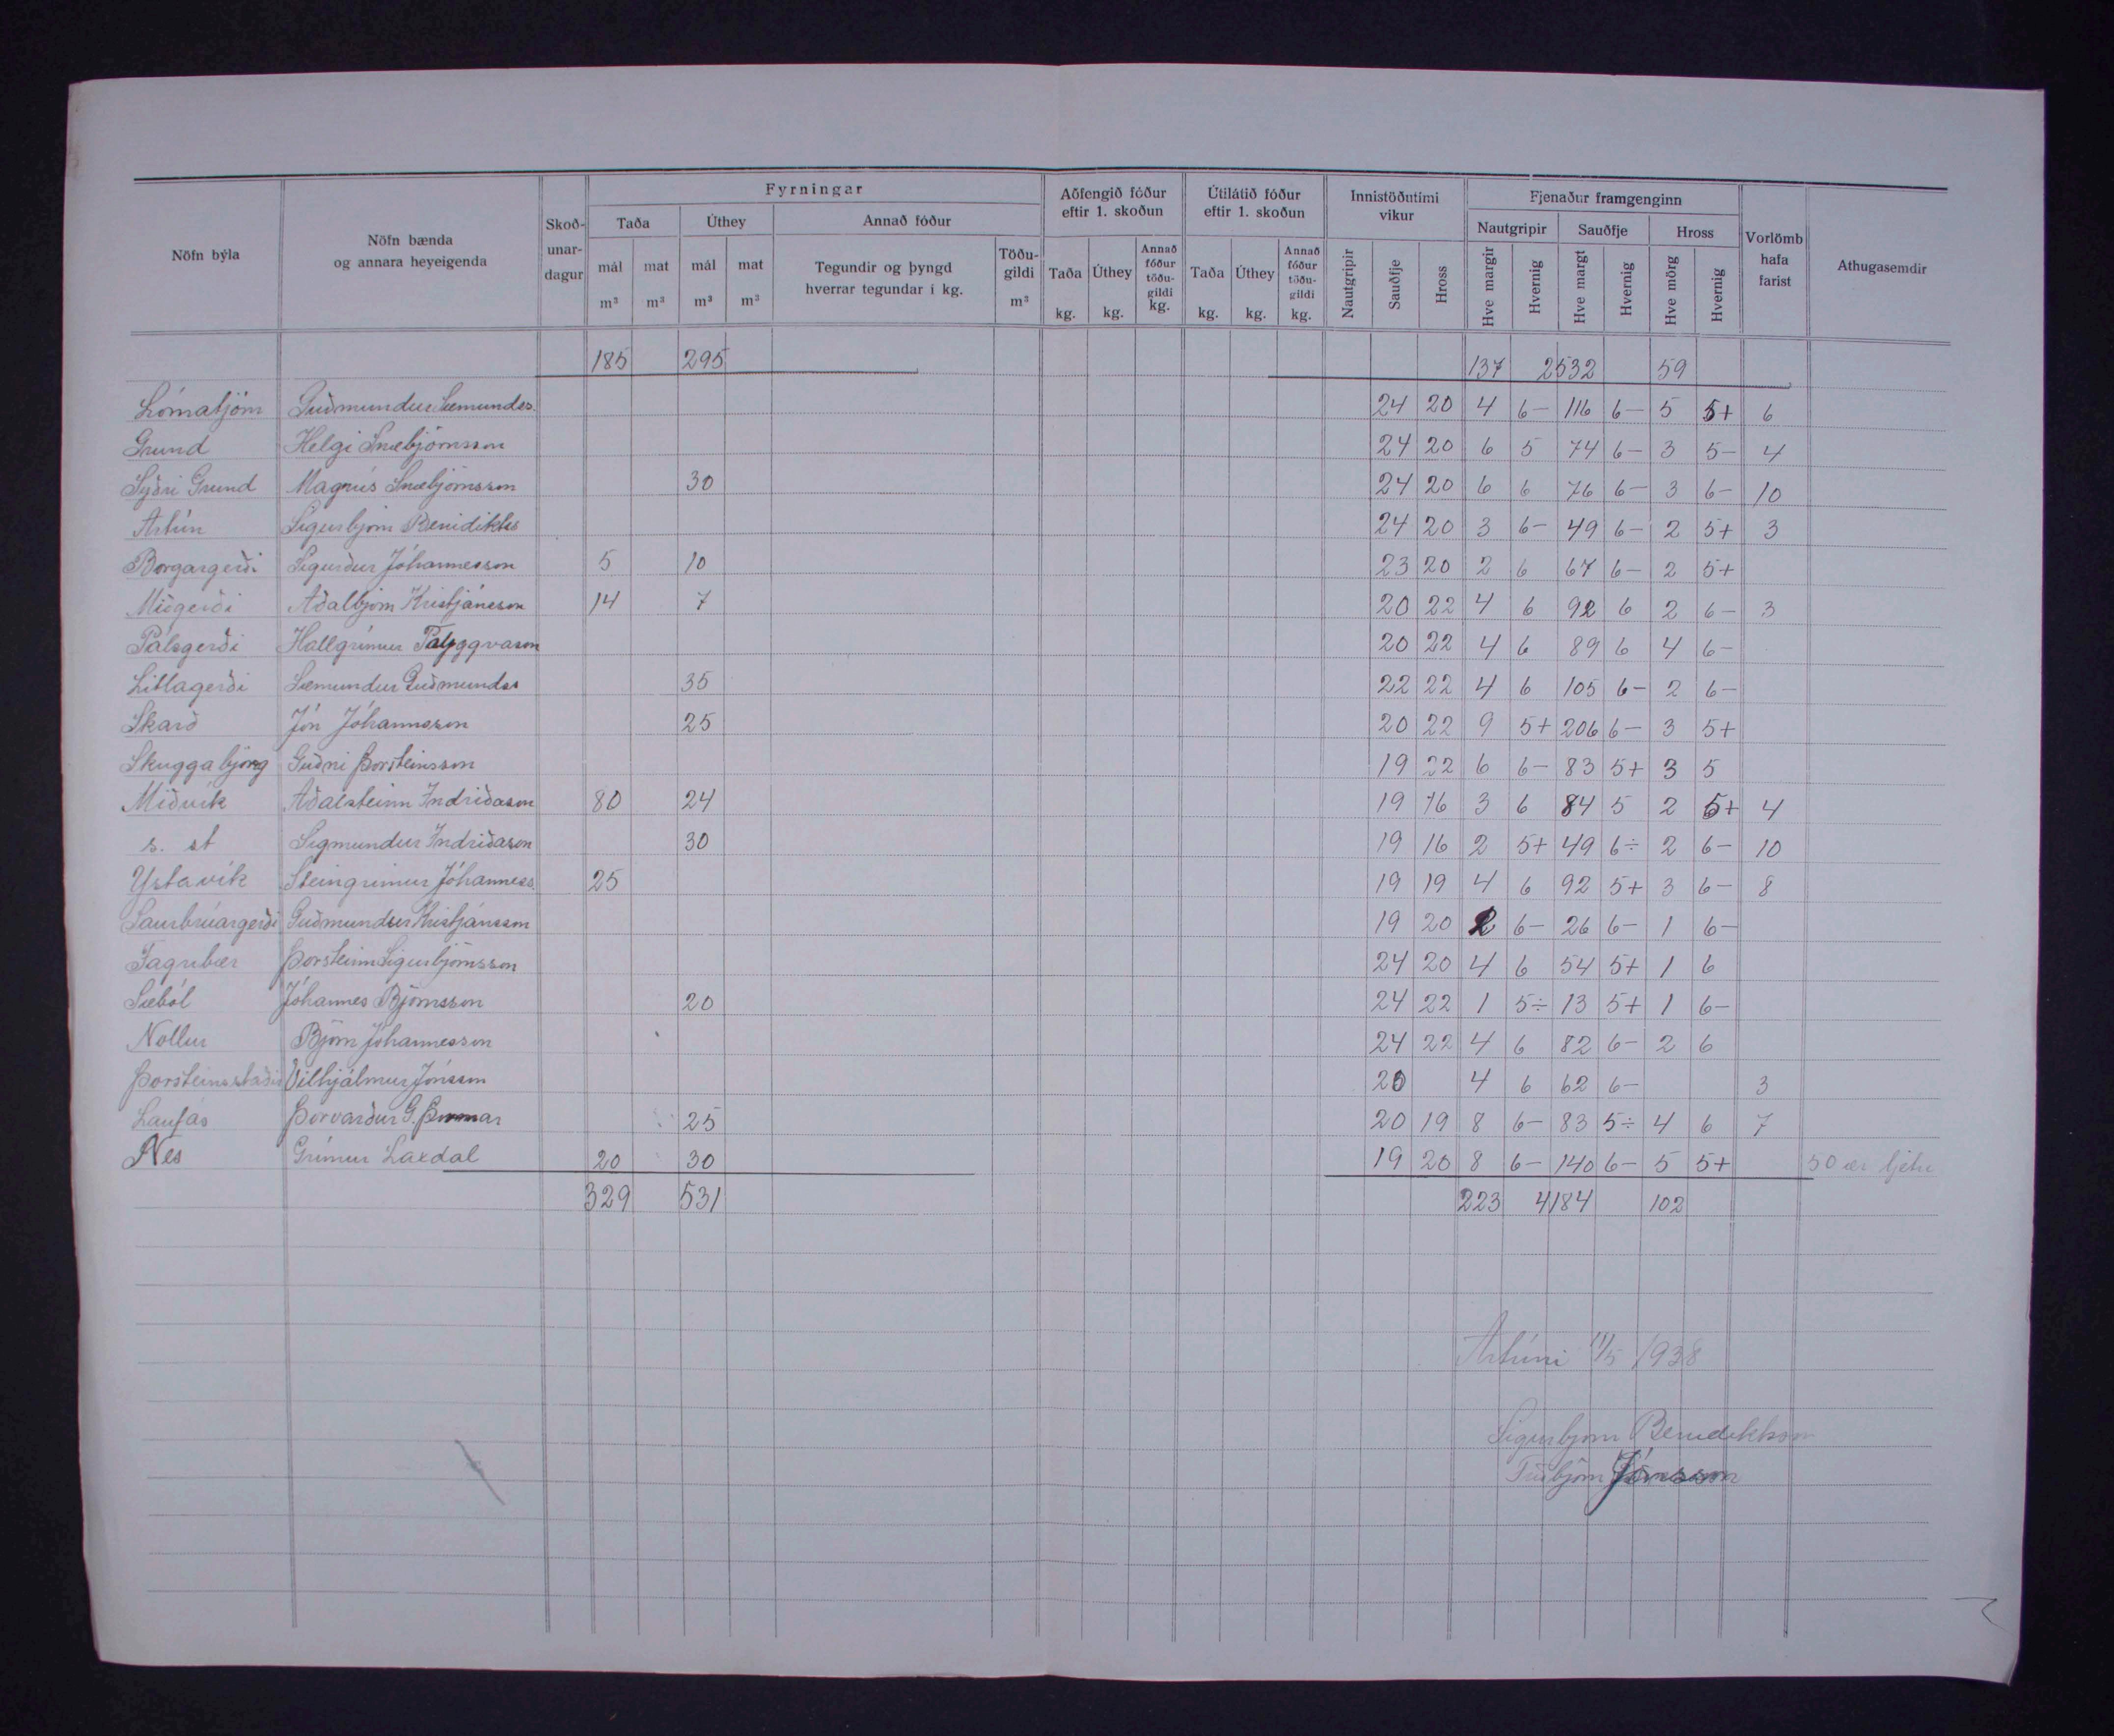 Nöfn býla Nöfn bænda og annara heyeigenda Skoðunar-dagur Fyrningar Aðfengið fóður eftir 1. skoðun Útilátið fóður eftir 1. skoðun Innistöðutími vikur Fjenaður framgenginn Vorlömb hafa farist Athugasemdir
Taða Úthey Annað fóður Nautgripir Sauðfje Hross
mál m³ mat m³ mál m³ mat m³ Tegundir og þyngd hverrar tegundar í kg. Töðu-gildi m³ Taða kg. Úthey kg. Annað fóður töðu-gildi kg. Taða kg. Úthey kg. Annað fóður töðu-gildi kg. Nautgripir Sauðfje Hross Hve margir Hvernig Hve margt Hvernig Hve mörg Hvernig
185 295 137 2532 59
Lómatjörn Guðmundur Sæmundss. 24 20 4 6- 116 6- 5 5+ 6
Grund Helgi Snæbjörnsson 24 20 6 5 74 6- 3 5- 4
Syðri Grund Magnús Snæbjörnsson 30 24 20 6 6 76 6- 3 6- 10
Artún Sigurbjörn Benidiktss 24 20 3 6- 49 6- 2 5+ 3
Borgargerði Sigurður Jóhannesson 5 10 23 20 2 6 67 6- 2 5+
Miðgerði Aðalbjörn Kristjánsson 14 7 20 22 4 6 92 6 2 6- 3
Pálsgerði Hallgrímur 20 22 4 6 89 6 4 6-
Litlagerði Sæmundur Guðmundss 35 22 22 4 6 105 6- 2 6-
Skarð Jón Jóhannsson 25 20 22 9 5+ 206 6- 3 5+
Skuggabjörg Guðni Þorsteinsson 19 22 6 6- 83 5+ 3 5
Miðvík Aðalsteinn Indriðason 80 24 19 16 3 6 84 5 2 5+ 4
s. st Sigmundur Indriðason 30 19 16 2 5+ 49 6÷ 2 6- 10
Ystavík Steingrímur Jóhanness. 25 19 19 4 6 92 5+ 3 6- 8
Saurbrúargerði Guðmundur Kristjánsson 19 20 2 6- 26 6- 1 6-
Fagribær Þorsteinn Sigurbjörnsson 24 20 4 6 54 5+ 1 6
Sæból Jóhannes Björnsson 20 24 22 1 5÷ 13 5+ 1 6-
Nollur Björn Jóhannesson 24 22 4 6 82 6- 2 6
Þorsteinsstaðir Vilhjálmur Jónsson 20 4 6 62 6- 3
Laufás Þorvarður G. Þormar 25 20 19 8 6- 83 5÷ 4 6 7
Nes Grímur Laxdal 20 30 19 20 8 6- 140 6- 5 5+ 50 ær
329 531 223 4184 102
Artúni 11/5 1938
Sigurbjörn Benediktsson
Jónsson